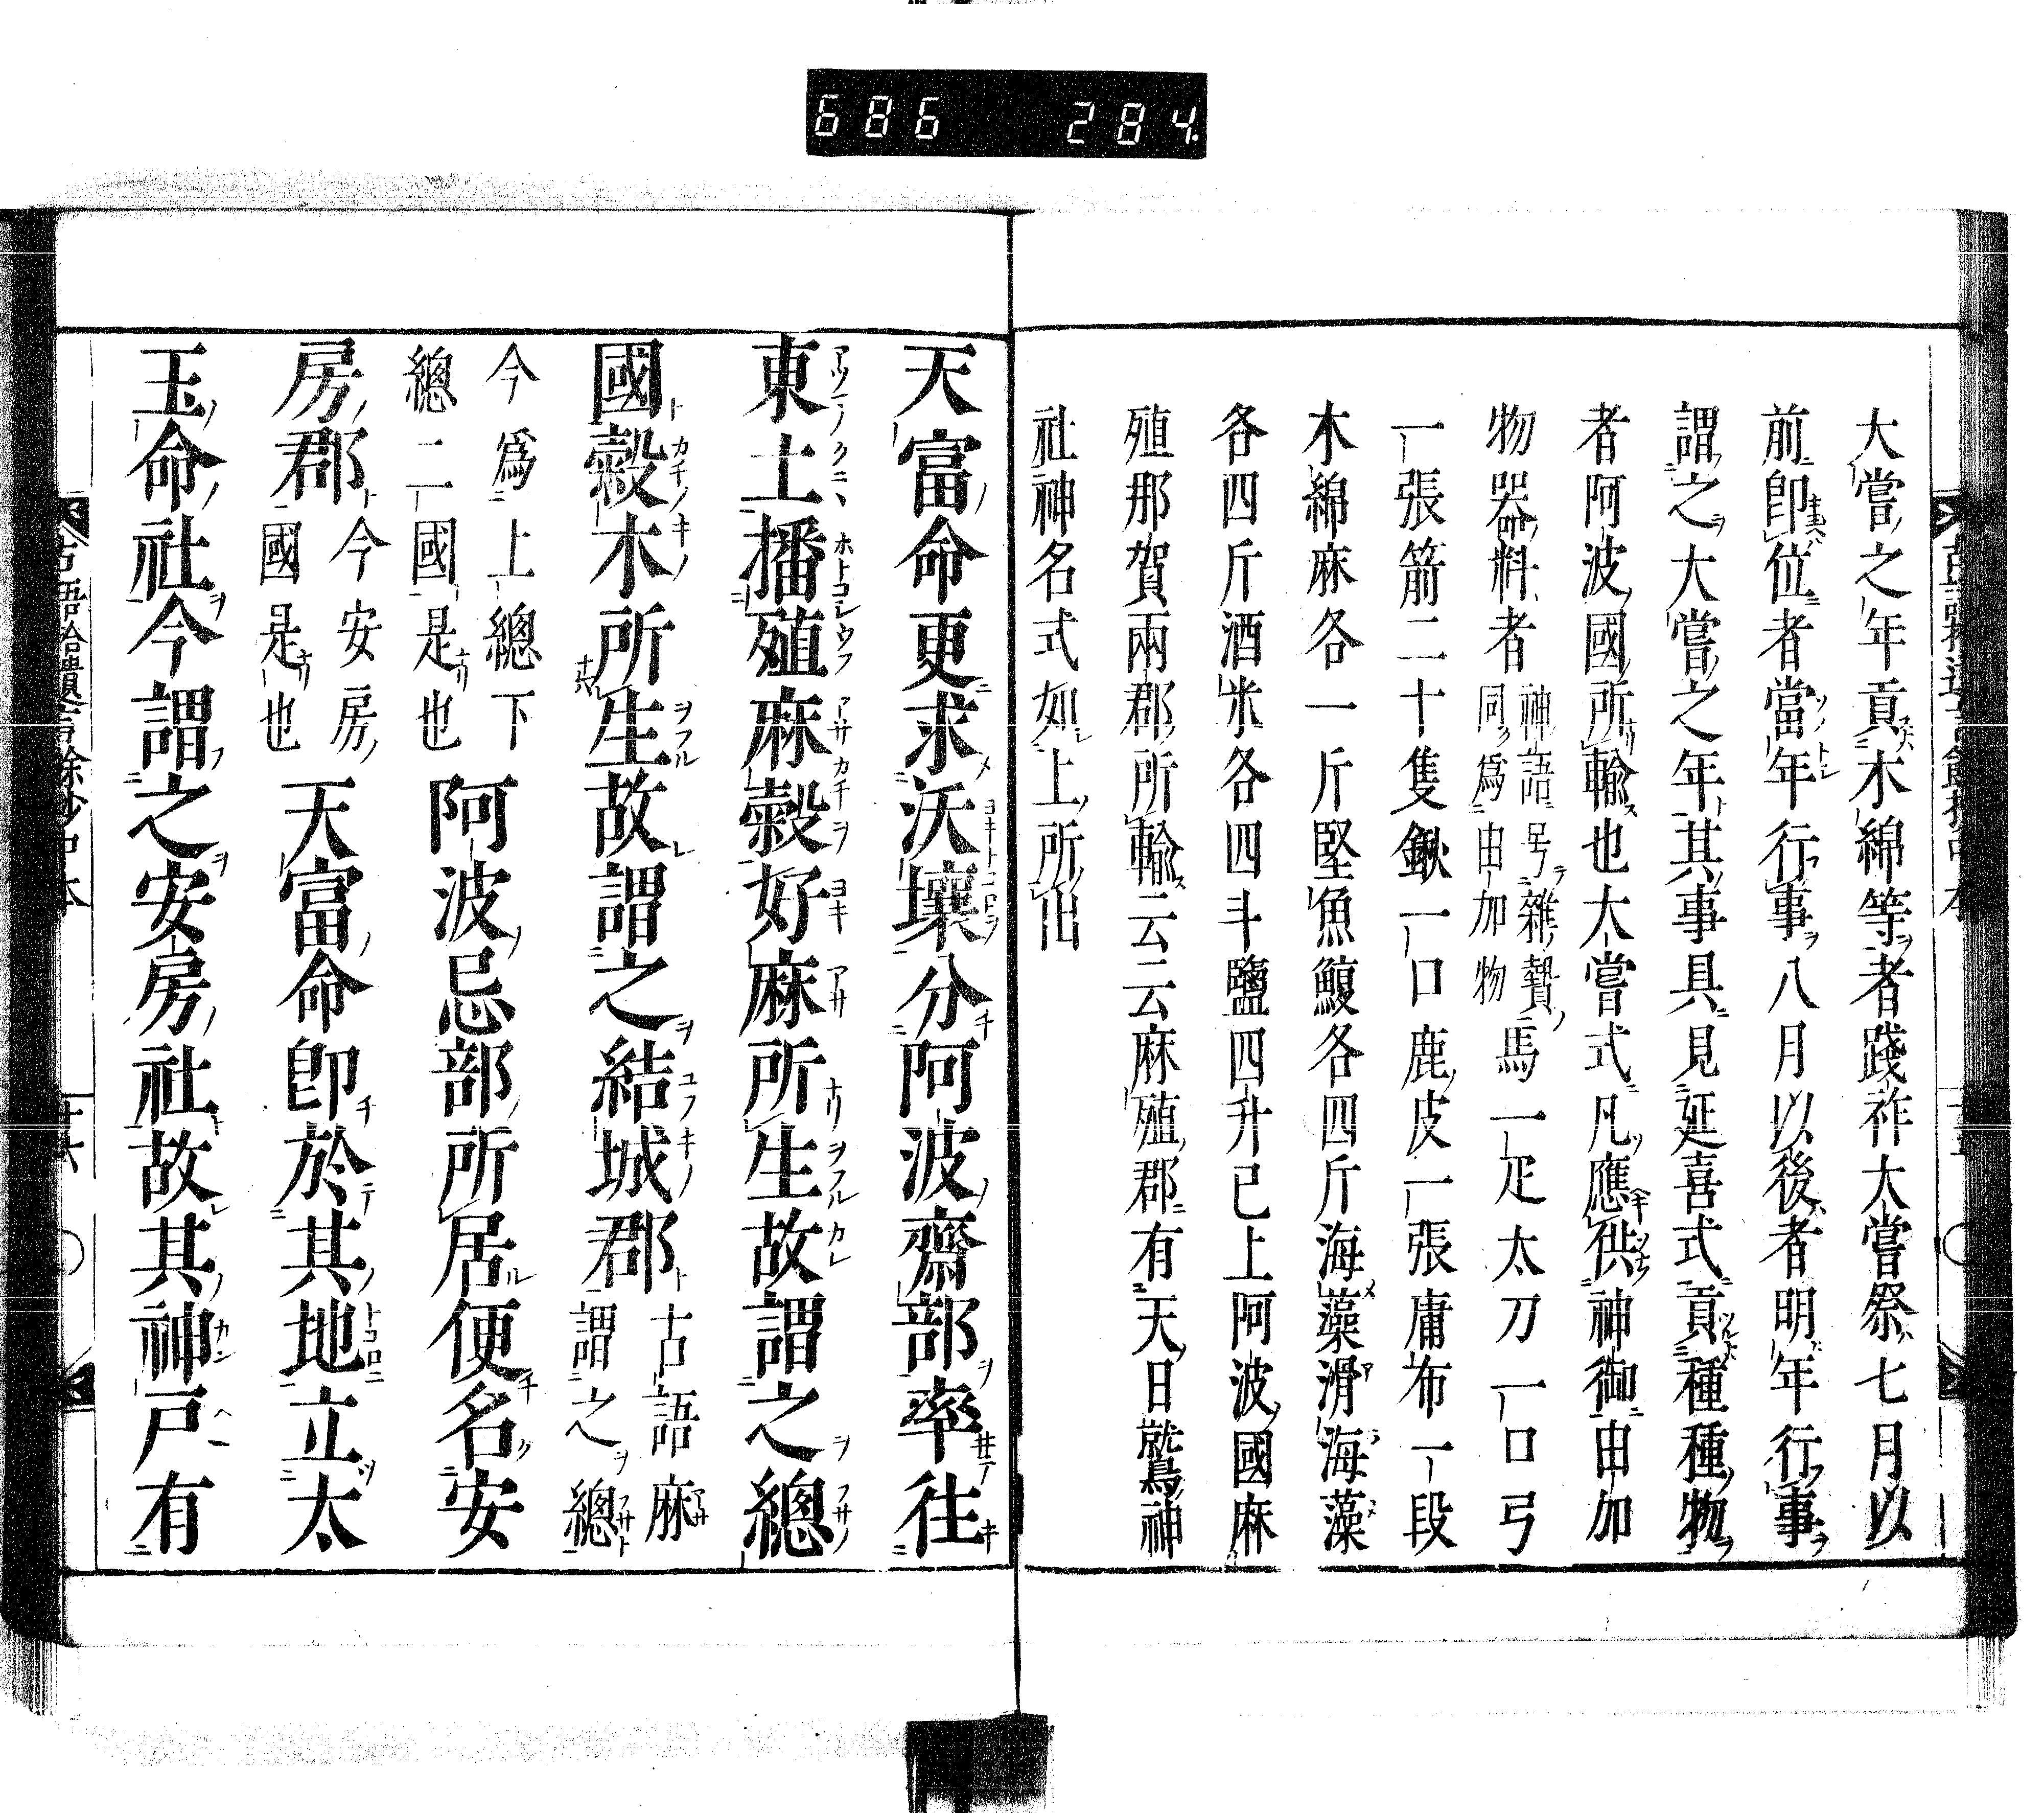 686 284
大嘗之年貢木綿等者踐祚大嘗祭七月以
前即位者當年行事八月以後者明年行事
謂之大嘗之年其事具見延喜式貢種種物
者阿波國所輸也大嘗式凡應供神御由加
物器料者神語号雜贄同爲由加物馬一疋太刀一口弓
一張箭二十隻鍬一口鹿皮一張庸布一段
木綿麻各一斤堅魚鰒各四斤海藻滑海藻
各四斤酒米各四斗鹽四升已上阿波國麻
殖那賀兩郡所輸云云麻殖郡有天日鷲神
社神名式如上所出
天富命更求沃壤分阿波齋部率往
東土播殖麻穀好麻所生故謂之總
國穀木所生故謂之結城郡古語麻謂之總
今爲上總下總二國是也阿波忌部所居便名安
房郡今安房國是也天富命即於其地立太
玉命社今謂之安房社故其神戸有